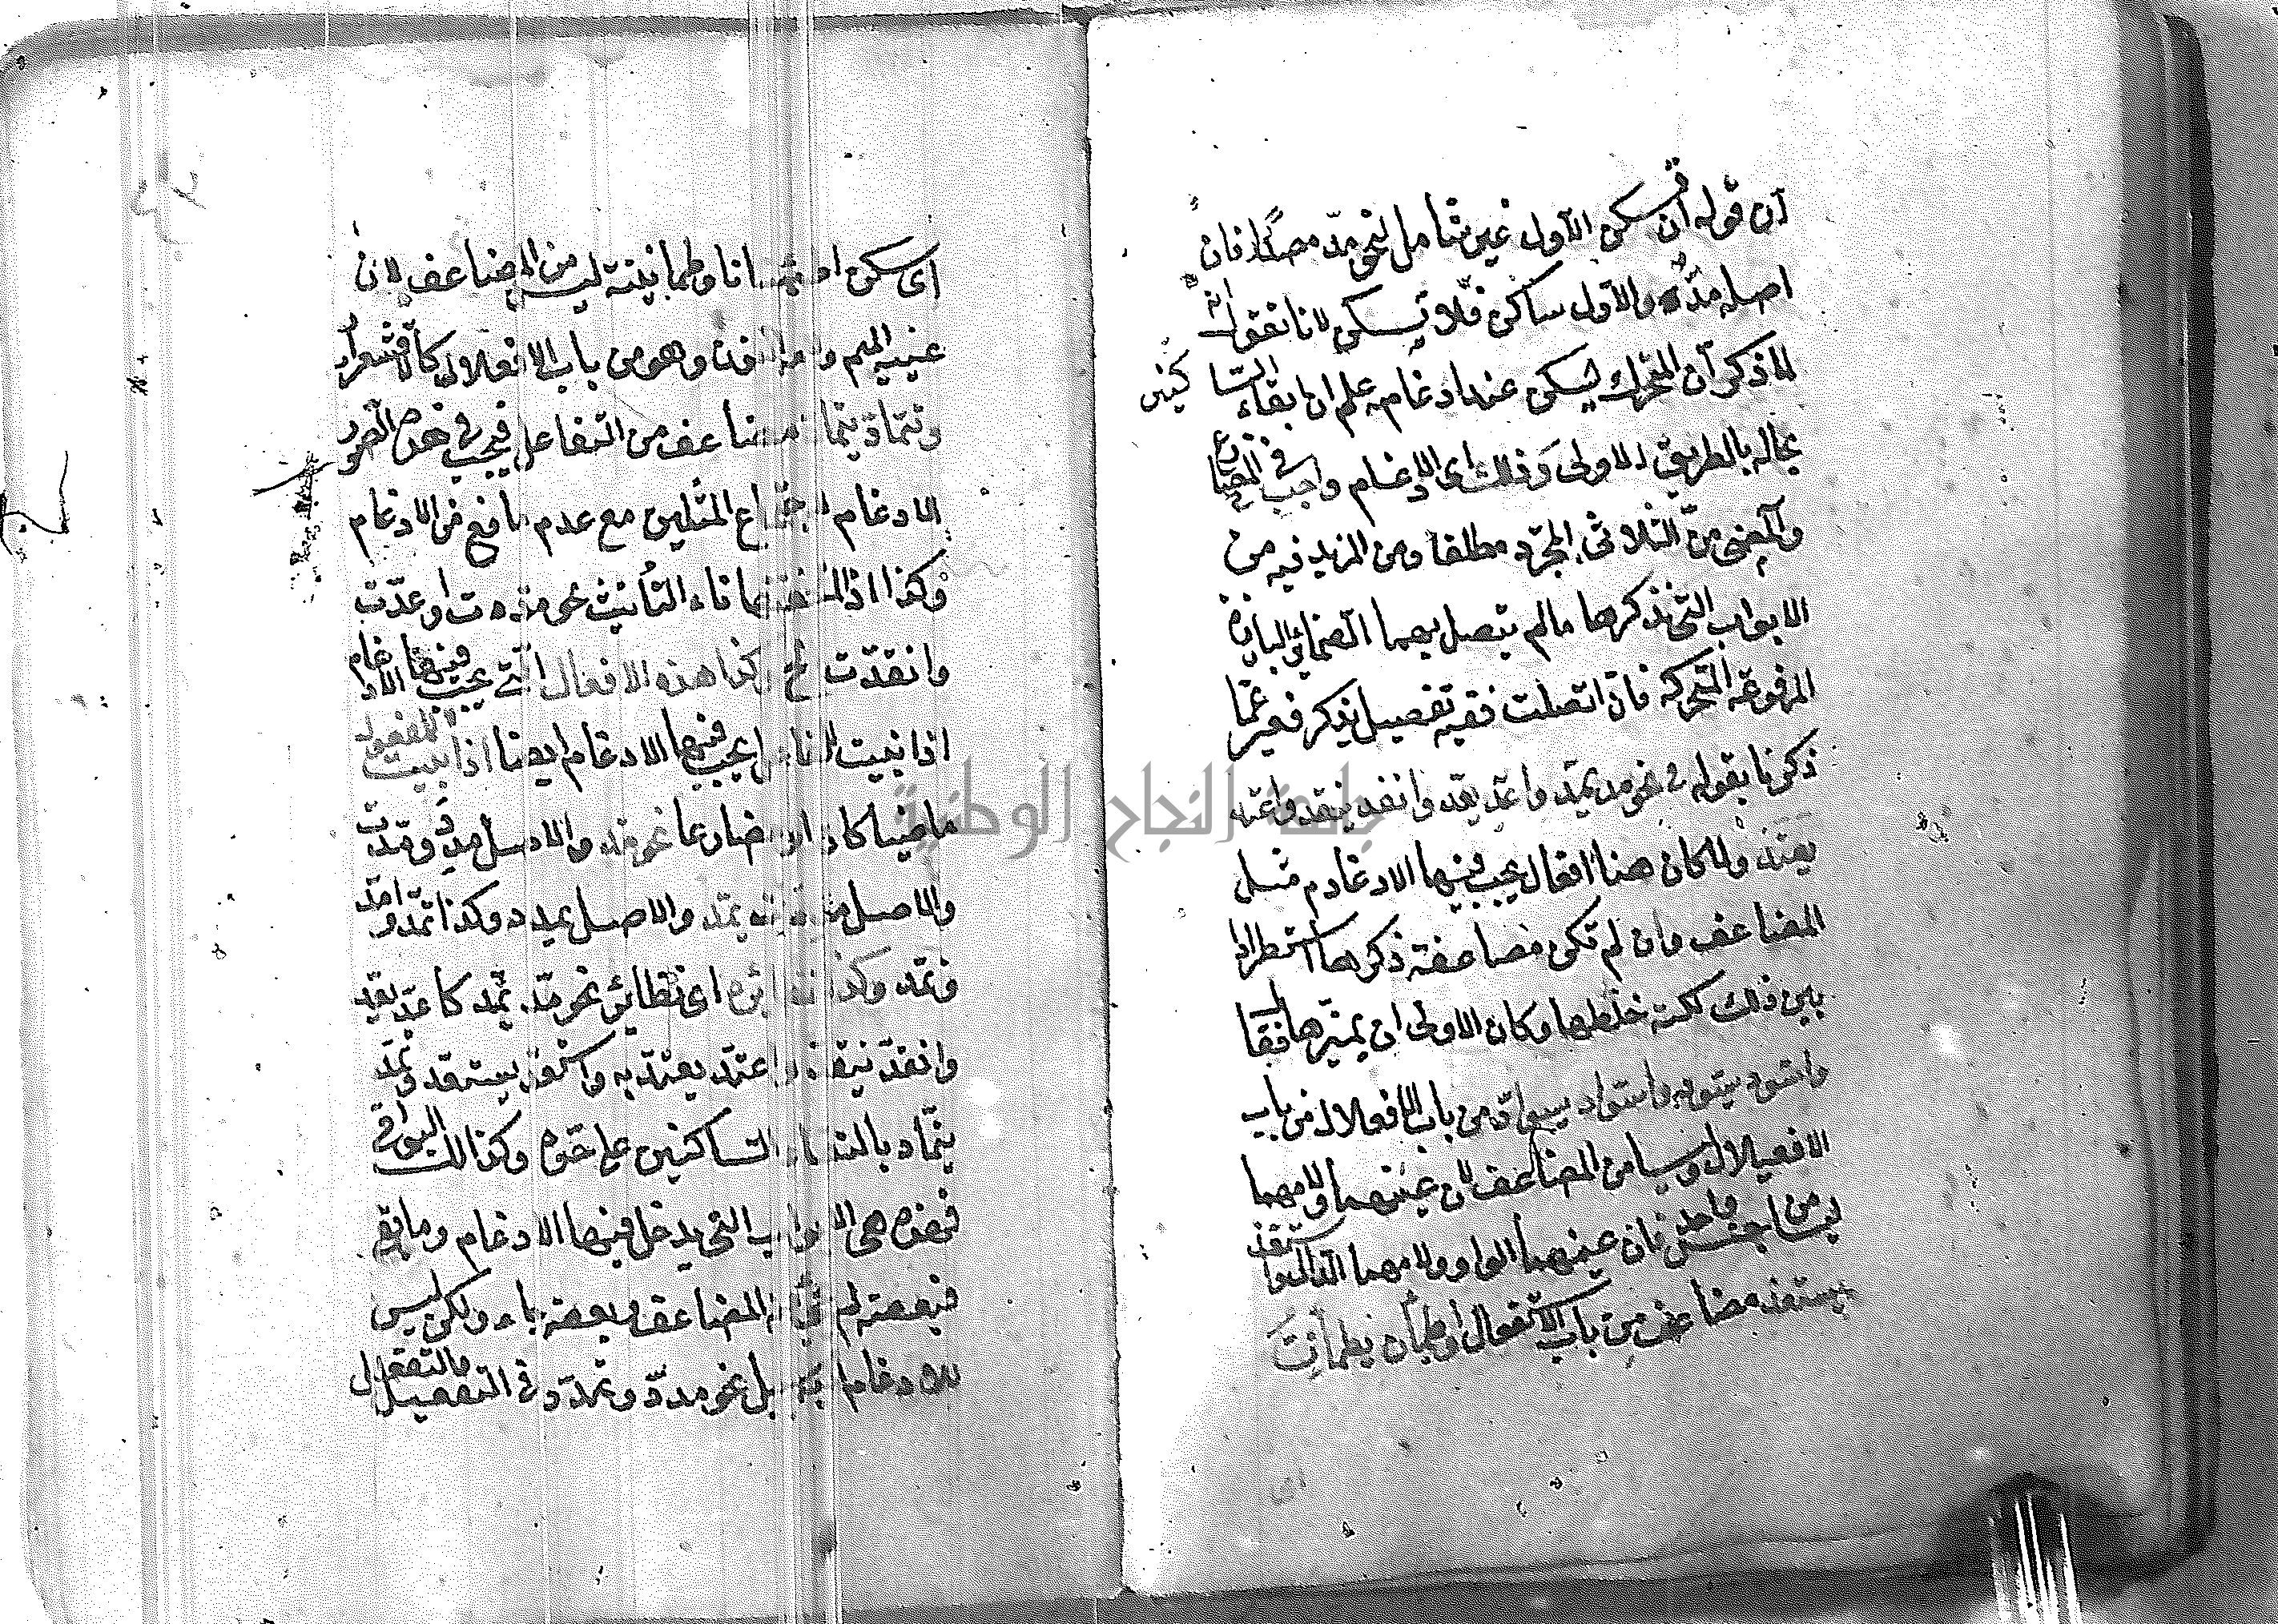 ان قوله ان تسكن الاول غير شامل لنحو مدّ مصدرا فان
اصله مدد والاول ساكن فلا تسكن لانا نقول انه
لما ذكر ان المتحرك يسكن عند ادغامه علم ان ابقاء الساكنين
بحاله بالطريق الاولى وذلك اى الادغام واجب فى المضارع
والماضى من الثلاثى المجرد مطلقا ومن المزيد فيه من
الابواب التى نذكرها ما لم يتصل بهما الضمائر البارزة
المرفوعة المتحركة فان اتصلت ففيه تفصيل يذكر فعبر عما
ذكرنا بقوله فى نحو مد يمد واعد يعد وانقد ينقد واعتد
يعتد ولما كان هنا افعال يجب فيها الادغام مثل
المضاعف وان لم تكن مضاعفة ذكرها استطرادا
بين ذلك لكنه خلطها وكان الاولى ان يميزها فقال
واسود يسود واسواد يسواد من باب الافعلال من باب
الافعيلال وليسا من المضاعف لان عينهما ولامهما
ليسا من جنس واحد فان عينهما الواو ولامهما الدال واستعد
يستعد مضاعف من باب الاستفعال واطمأن يطمأن
اى سكن اطمئنانا وطمانينة ليس من المضاعف لان
عينه الميم ولامه النون وهو من باب الافعلال كالاقشعرار
وتماد يتماد مضاعف من التفاعل فيجب فى هذه الصور
الادغام لاجتماع المثلين مع عدم مانع من الادغام
وكذا اذا لحقتها تاء التأنيث نحو مدت واعدت
وانقدت الخ وكذا هذه الافعال التى يجب فيها الادغام
اذا بنيت للفاعل يجب فيها الادغام ايضا اذا بنيت للمفعول
ماضيا كان او مضارعا نحو مد والاصل مدد ومدت
والاصل مددت يمد والاصل يمدد وكذا تمد وامد
ونمد وكذا نظائره اى نظائر نحو مد يمد كاعد يعد
وانقد ينقد واعتد يعتد به واستعد يستعد وتمد
يتماد بالتقاء الساكنين على حده وكذلك البواقى
فهذه هى الابواب التى يدخل فيها الادغام وما بقى
فبعضه لم يجئ المضاعف وبعضه جاء ولكن ليس
للادغام اليه سبيل نحو مدد وتمدد فى التفعيل والتفعل
جامعة النجاح الوطنية